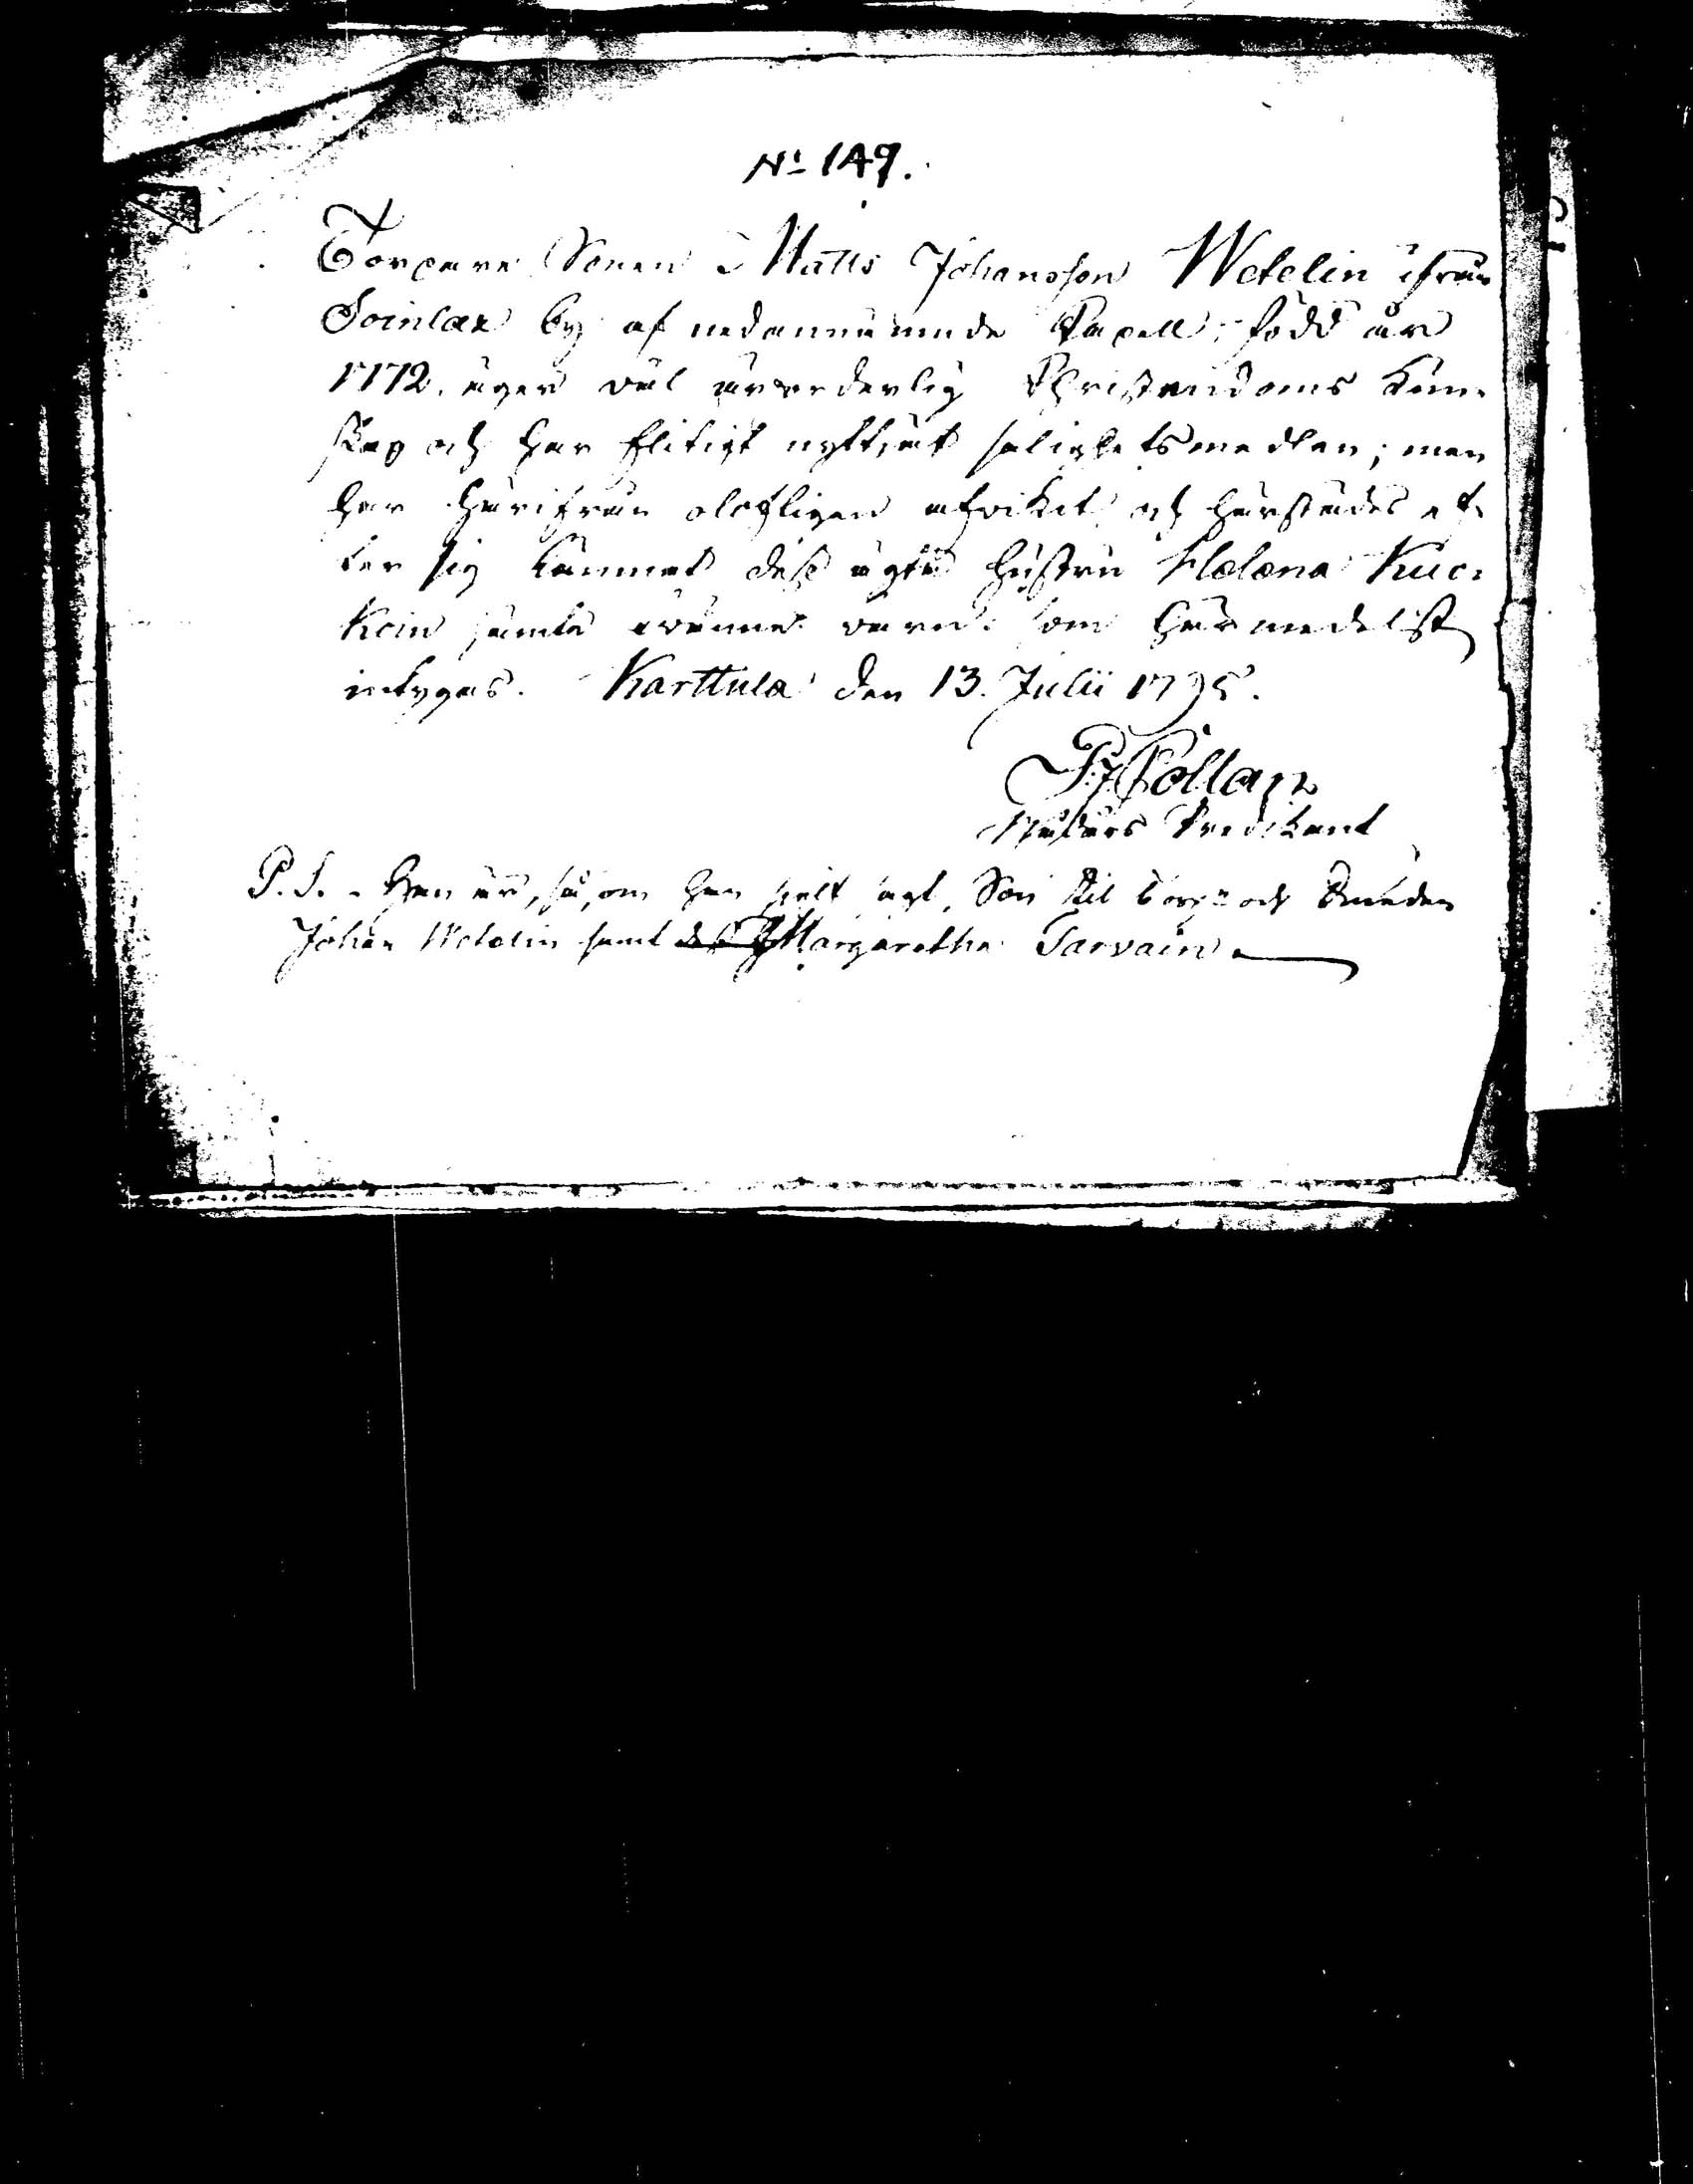 No 149.
Torpare Sonen Matts Johansson Wetelin ifrån
Soinlax by af nedannämnde Capell; född år
1772. äger väl ärforderlig Christendoms Kun-
skap och har flitigt nyttjat salighetsmedlen; men
har härifrån olofligen afvikit och härstädes ef-
ter sig lämnat dess ägta hustru Helena Kuc-
koin jämte tvänne barn: som härmedelst
intygas. Karttula den 13. Julii 1795.
P. Pollan
Predikant
P.S. Han är, såsom han sielf sagt, Son till torp- och Smeden
Johan Wetelin samt Margaretha Tarvain